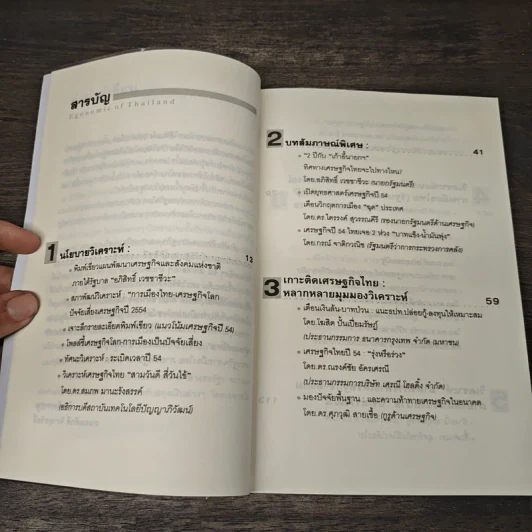 สารบัญ
Egonomic of Thailand
1 นโยบายวิเคราะห์ : 13
• พิมพ์เขียวแผนพัฒนาเศรษฐกิจและสังคมแห่งชาติ
ภายใต้รัฐบาล "อภิสิทธิ์ เวชชาชีวะ"
• สภาพัฒน์วิเคราะห์ : "การเมืองไทย-เศรษฐกิจโลก
ปัจจัยเสี่ยงเศรษฐกิจปี 2554
• เจาะลึกรายละเอียดพิมพ์เขียว (แนวโน้มเศรษฐกิจปี 54)
• โพลล์ชี้เศรษฐกิจโลก-การเมืองเป็นปัจจัยเสี่ยง
• ทัศนะวิเคราะห์ : ระเบิดเวลาปี 54
• วิเคราะห์เศรษฐกิจไทย "สามวันดี สี่วันไข้"
โดย.ดร.สมภพ มานะรังสรรค์
(อธิการบดีสถาบันเทคโนโลยีปัญญาภิวัฒน์)
2 บทสัมภาษณ์พิเศษ : 41
• "2 ปีกับ "เก้าอี้นายกฯ"
ทิศทางเศรษฐกิจไทยจะไปทางไหน?
โดย.อภิสิทธิ์ เวชชาชีวะ (นายกรัฐมนตรี)
• เปิดยุทธศาสตร์เศรษฐกิจปี 54
เตือนวิกฤตการเมือง "ฉุด" ประเทศ
โดย.ดร.ไตรรงค์ สุวรรณคีรี (รองนายกรัฐมนตรีด้านเศรษฐกิจ)
• เศรษฐกิจปี 54 ไทยเจอ 2 ห่วง "บาทแข็ง-น้ำมันพุ่ง"
โดย.กรณ์ จาติกวณิช (รัฐมนตรีว่าการกระทรวงการคลัง)
3 เกาะติดเศรษฐกิจไทย :
หลากหลายมุมมองวิเคราะห์ 59
• เตือนเงินล้น-บาทป่วน : แนะธปท.ปล่อยกู้-ลงทุนให้เหมาะสม
โดย.โฆสิต ปั้นเปี่ยมรัษฎ์
(ประธานกรรมการ ธนาคารกรุงเทพ จำกัด (มหาชน)
• เศรษฐกิจไทยปี 54 "รุ่งหรือร่วง"
โดย.ดร.ณรงค์ชัย อัครเศรณี
(ประธานกรรมการบริษัท เศรณี โฮลดิ้ง จำกัด)
• มองปัจจัยพื้นฐาน : และความท้าทายเศรษฐกิจในอนาคต
โดย.ดร.ศุภวุฒิ สายเชื้อ (กูรูด้านเศรษฐกิจ)